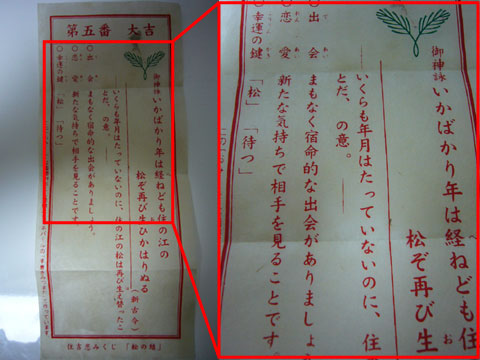 第五番 大吉
御神詠 いかばかり年は経ねども住の江の
松ぞ再び生ひかはりぬる
(新古今)
いくらも年月はたっていないのに、住の江の松は再び生え替ったこ
とだ、の意。
○出会 まもなく宿命的な出会がありましょう。
○恋愛 新たな気持ちで相手を見ることです。
○幸運の鍵 「松」「待つ」
住吉恋みくじ
御神詠 いかばかり年は経ねども住
松ぞ再び生
いくらも年月はたっていないのに、住
とだ、の意。
○出会 まもなく宿命的な出会がありましょ
○恋愛 新たな気持ちで相手を見ることです
○幸運の鍵 「松」「待つ」